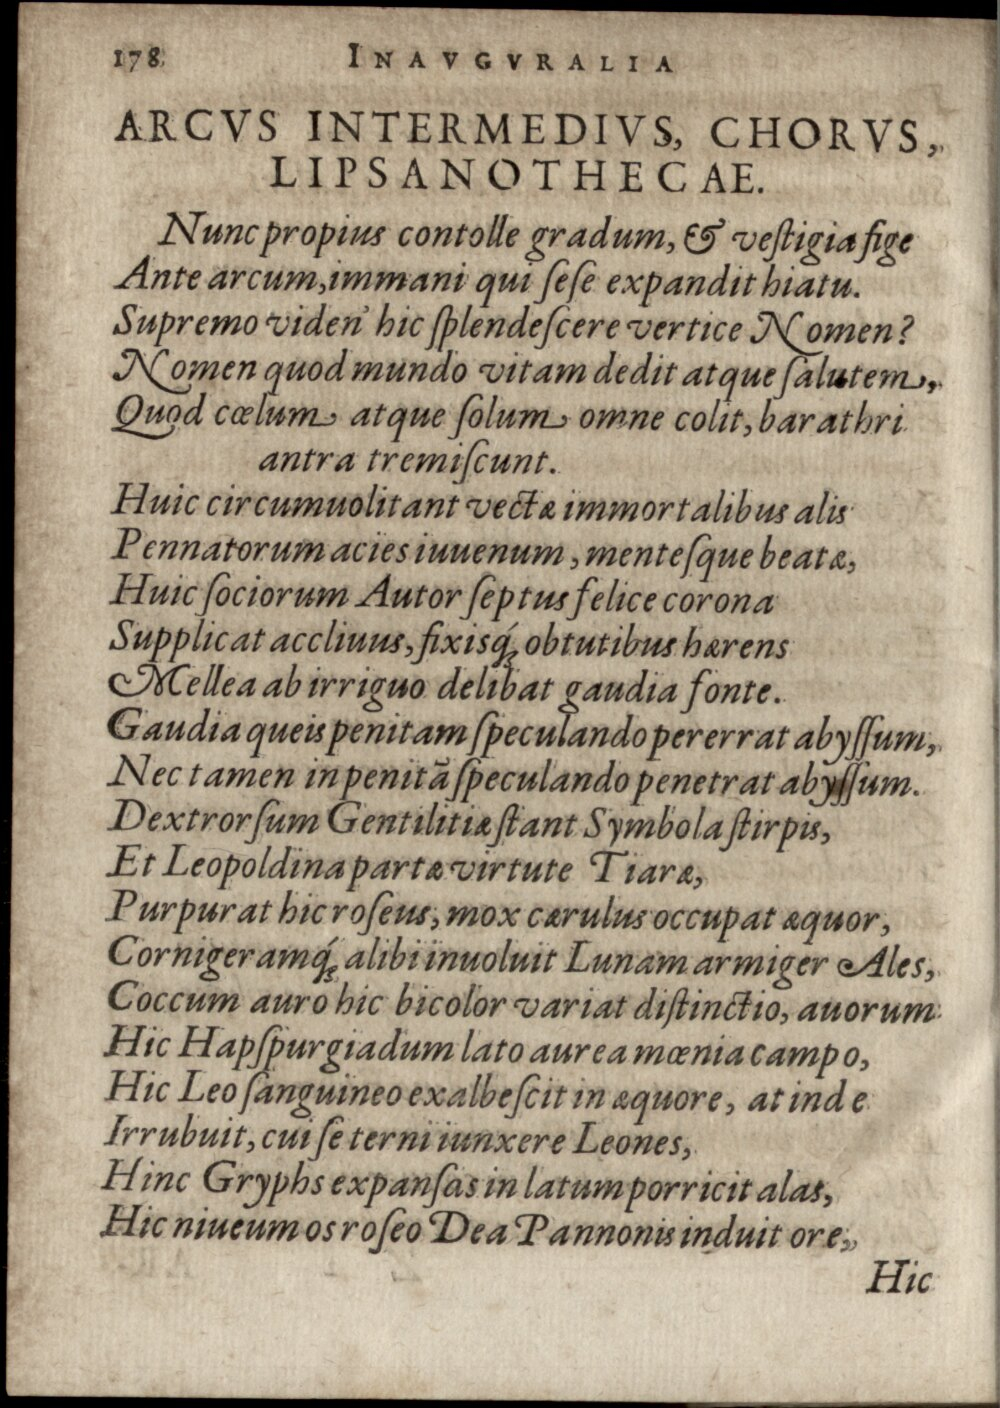 178 INAVGVRALIA
ARCVS INTERMEDIVS, CHORVS,
LIPSANOTHECAE.
Nunc propius contolle gradum, & veſtigia fige
Ante arcum, immani qui ſeſe expandit hiatu.
Supremo viden' hic ſplendeſcere vertice Nomen?
Nomen quod mundo vitam dedit atque ſalutem,
Quod cœlum atque ſolum omne colit, barathri
antra tremiſcunt.
Huic circumuolitant vectæ immortalibus alis
Pennatorum acies iuuenum, menteſque beatæ,
Huic ſociorum Autor ſeptus felice corona
Supplicat accliuus, fixisq́; obtutibus hærens
Mellea ab irriguo delibat gaudia fonte.
Gaudia queis penitam ſpeculando pererrat abyſſum,
Nec tamen in penitã ſpeculando penetrat abyſſum.
Dextrorſum Gentilitiæ ſtant Symbola ſtirpis,
Et Leopoldina partæ virtute Tiaræ,
Purpurat hic roſeus, mox cærulus occupat æquor,
Cornigeramq́; alibi inuoluit Lunam armiger Ales,
Coccum auro hic bicolor variat diſtinctio, auorum
Hic Hapſpurgiadum lato aurea mœnia campo,
Hic Leo ſanguineo exalbeſcit in æquore, at inde
Irrubuit, cui ſe terni iunxere Leones,
Hinc Gryphs expanſas in latum porricit alas,
Hic niueum os roſeo Dea Pannonis induit ore,
Hic